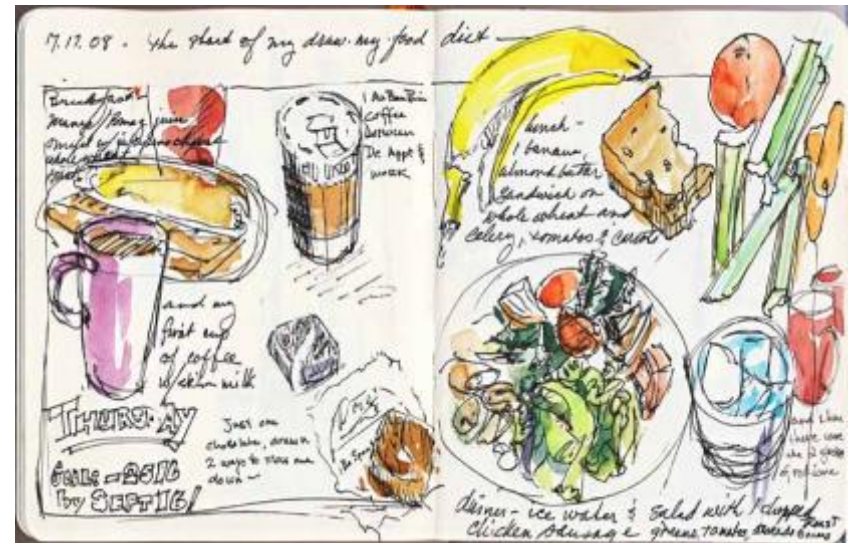 7.17.08 - the start of my draw-my-food diet -
Breakfast -
Mango / juice
omelet w/ cheese
whole wheat
toast
1 Au Bon Pain
coffee
between
Dr. Appt &
work
and my
first cup
of coffee
w/ skim milk
THURSDAY
by SEPT 16!
Just one
chocolate, drawn
2 ways to slow me
down ~
lunch -
1 banana
almond butter
sandwich on
whole wheat and
celery, tomatos & carrots
and then
there were
the 2
of red wine
dinner - ice water & salad with 1 chopped
chicken sausage greens, tomatos,